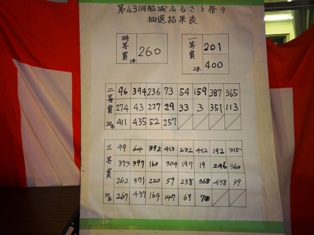 第43回脇城ふるさと祭り
抽選結果表
特等賞 1本 260
一等賞 2本 201
400
二等賞 20本
96 394 236 73 54 159 387 365
274 43 227 29 33 3 351 113
411 435 52 257
三等賞
99 64 392 413 232 452 192 215
373 399 160 304 197 19 246 360
262 371 220 59 238 368 438 39
267 437 169 147 69